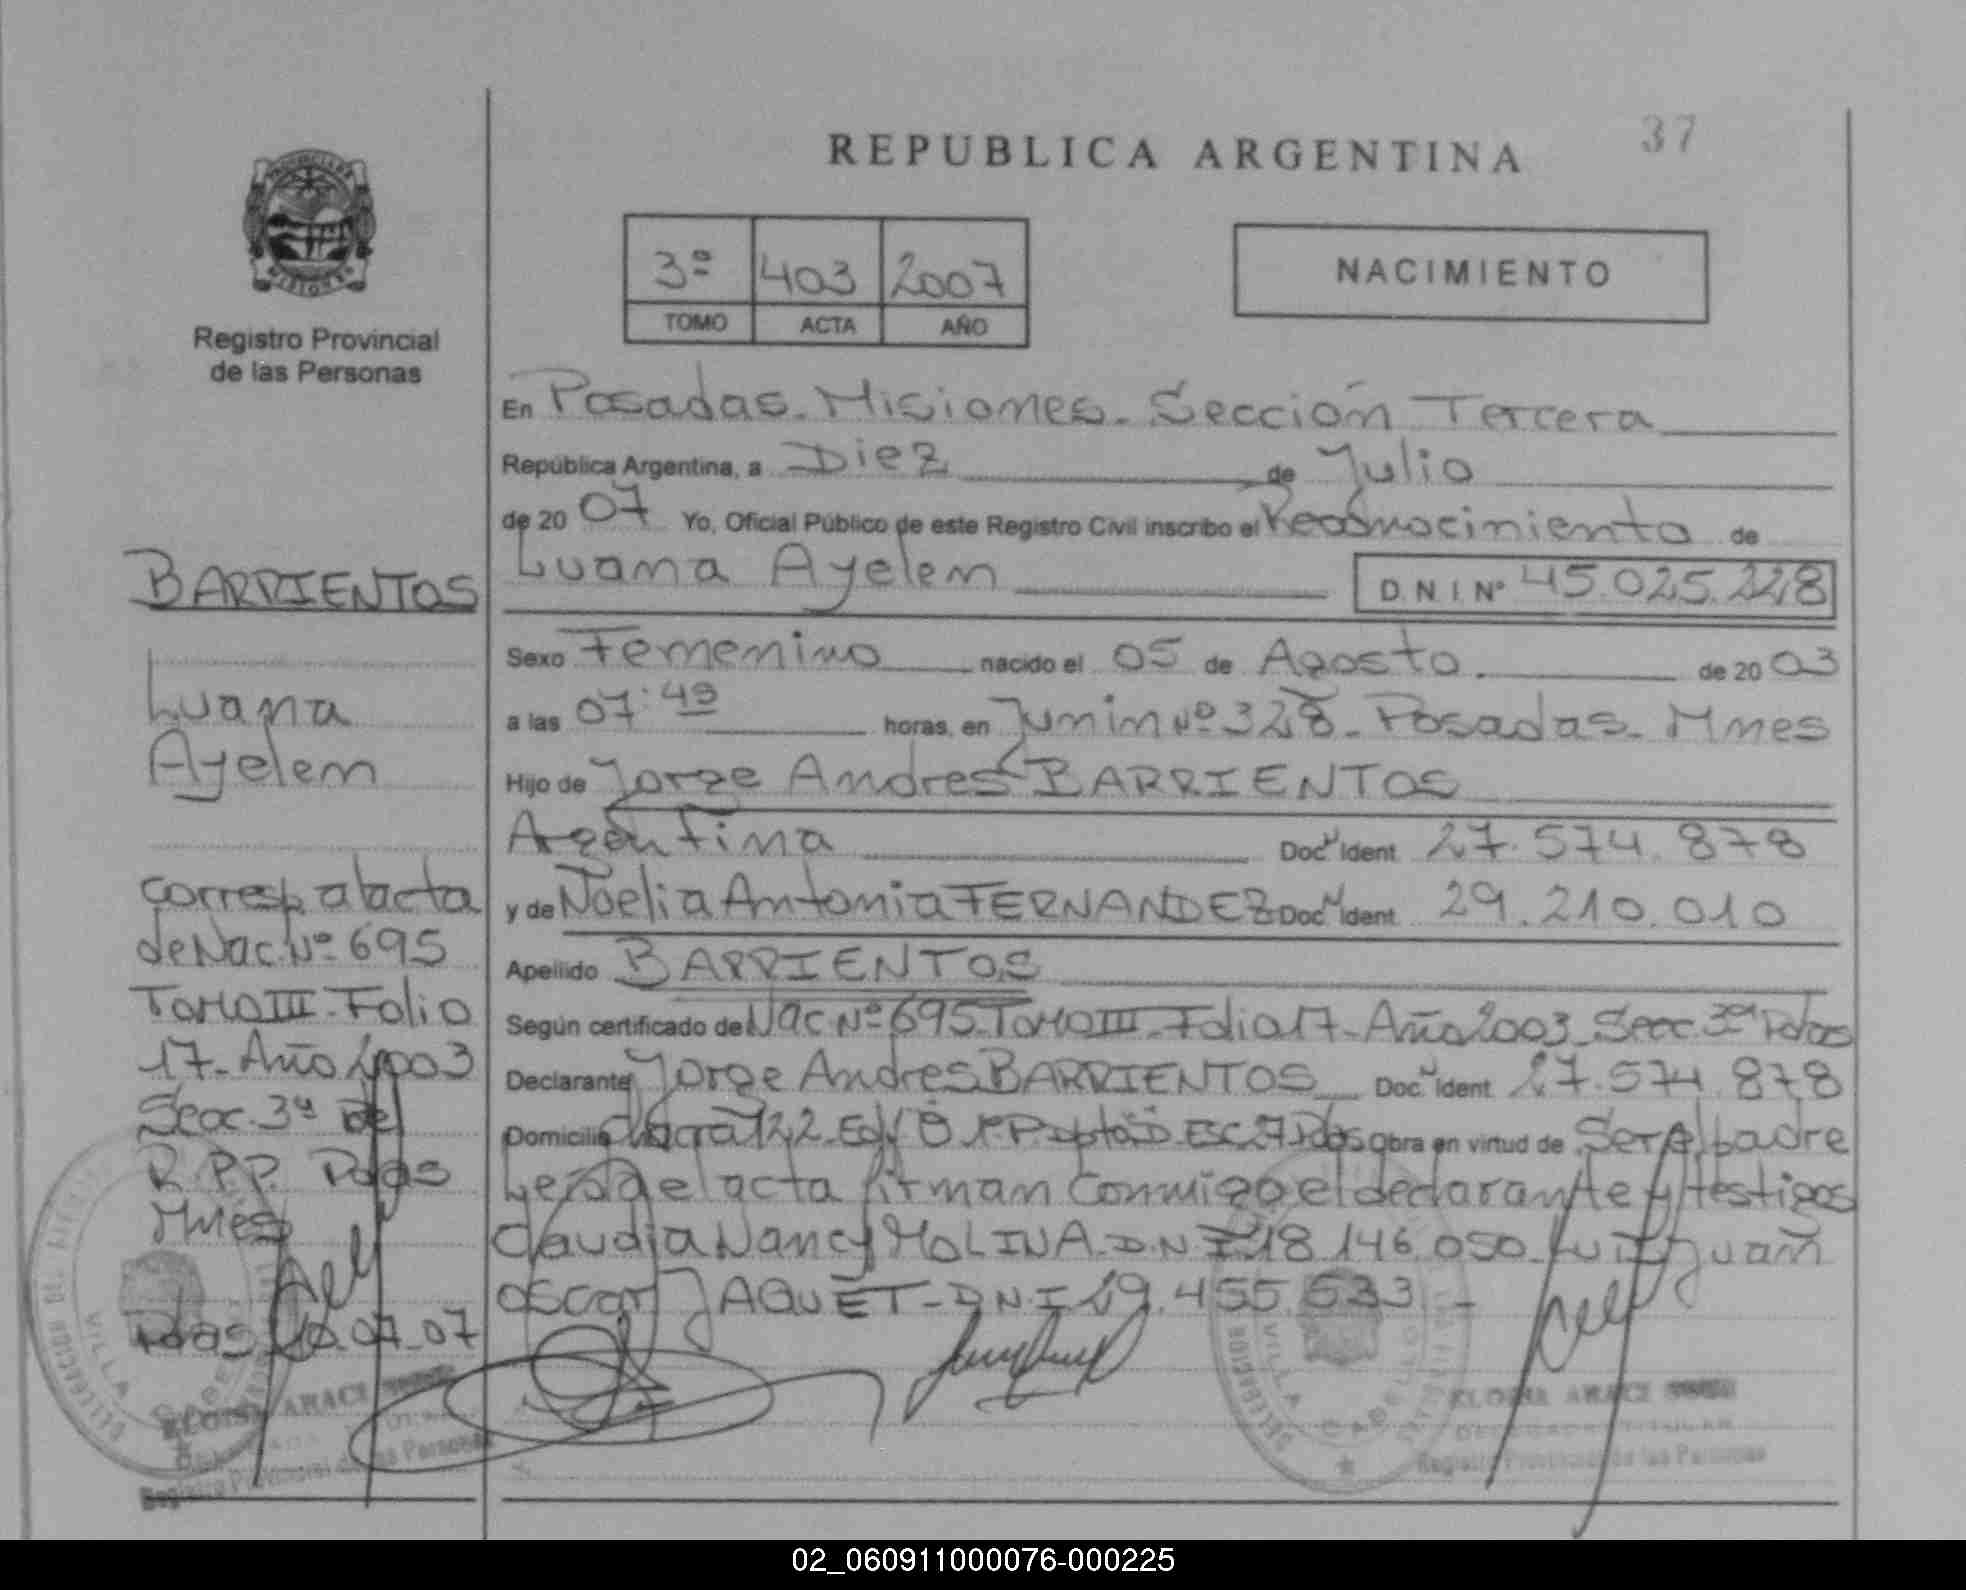 37
REPUBLICA ARGENTINA
PROVINCIA DE
MISIONES
Registro Provincial
de las Personas
3º 403 2007
TOMO ACTA AÑO
NACIMIENTO
En Posadas. Misiones. Sección Tercera
República Argentina, a Diez de Julio
de 20 07 Yo, Oficial Público de este Registro Civil inscribo el Reconocimiento de
Luana Ayelem D.N.I. Nº 45.025.228
Sexo Femenino nacido el 05 de Agosto de 20 03
a las 07:49 horas, en Junin Nº 328. Posadas. Mnes
Hijo de Jorge Andres BARRIENTOS
Argentina Doc. Ident. 27.574.878
y de Noelia Antonia FERNANDEZ Doc. Ident. 29.210.010
Apellido BARRIENTOS
Según certificado de Nac Nº 695. TOMO III. Folio 17. Año 2003. Secc. 3ª Pdas
Declarante Jorge Andres BARRIENTOS Doc. Ident. 27.574.878
Domicilio chacra 122. Edf. Dpto Pdas Obra en virtud de Ser el padre
Leida el acta firman conmigo el declarante y testigos
Claudia Nancy MOLINA. D.N.I 18.146.050. Luis Juan
Oscar JAQUET - D.N.I 29.455.533 -
BARRIENTOS
Luana
Ayelem
Corresp. al acta
de Nac. Nº 695
TOMO III. Folio
17. Año 2003
Secc. 3ª del
R.P.P. Pdas
Mnes
Pdas 10.07.07
DELEGACION
VILLA CABELLO
ARACI
Registro Provincial de las Personas
DELEGACION
VILLA CABELLO
ARACI
Registro Provincial de las Personas
02_060911000076-000225